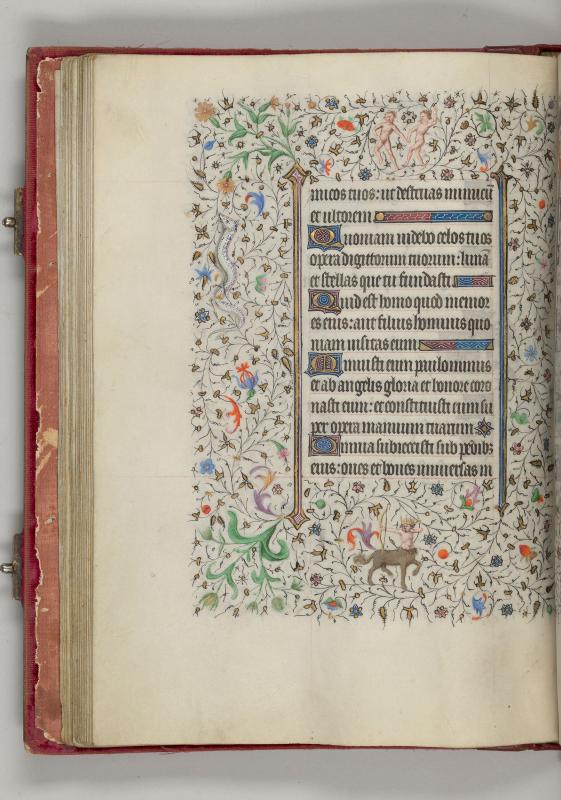 imicos tuos: ut destruas inimicū
et ultorem
Quoniam videbo celos tuos
opera digittorum tuorum: lunā
et stellas que tu fundasti
Quid est homo quod memor
es eius: aut filius hominis quo
niam visitas eum
Minuisti eum paulominus
et ab angelis gloria et honore coro
nasti eum: et constituisti eum su
per opera manuum tuarum
Omnia subiecisti sub pedib;
eius: oues et boues universas in